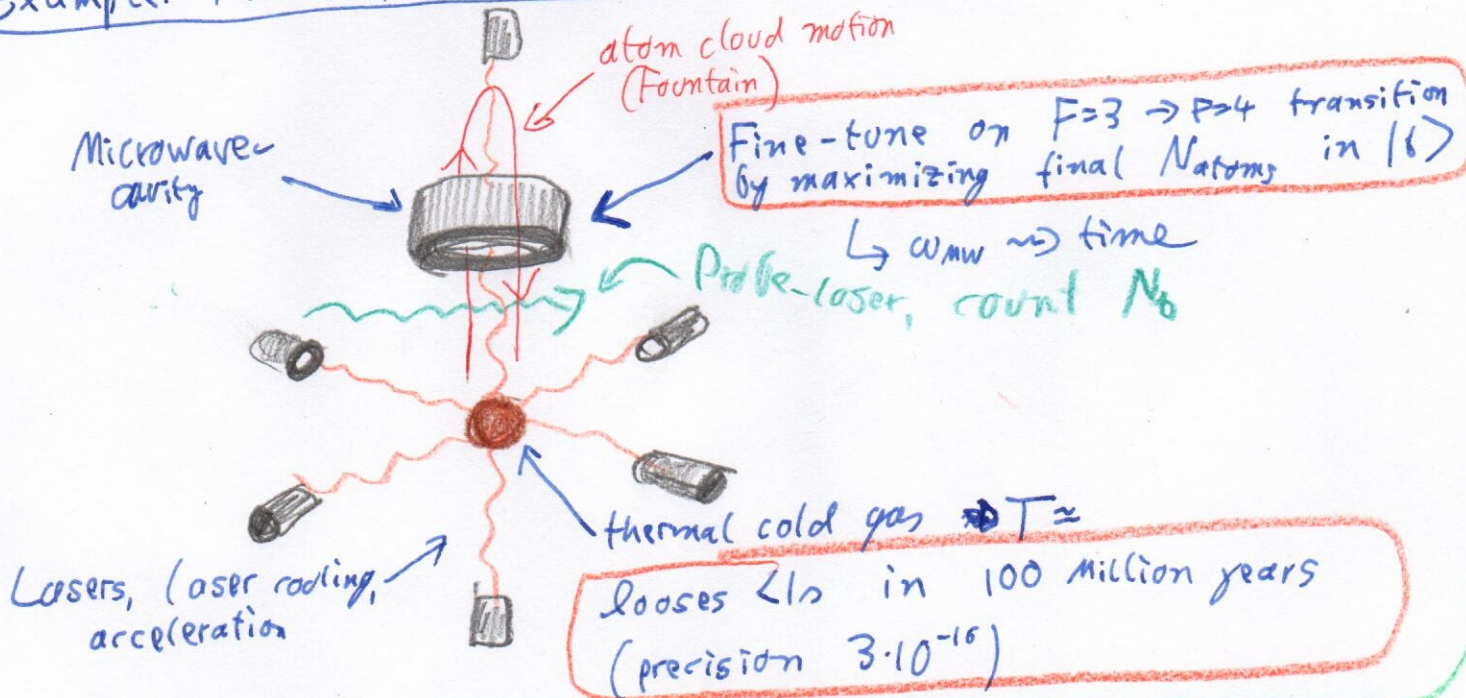 Example:
atom cloud motion
(Fountain)
Microwave
cavity
Fine-tune on F=3 → F=4 transition
by maximizing final Natoms in |b>
↳ ωMW ~> time
Probe-laser, count Nb
thermal cold gas → T≈
Lasers, laser cooling,
acceleration
looses <1s in 100 Million years
(precision 3·10⁻¹⁶)